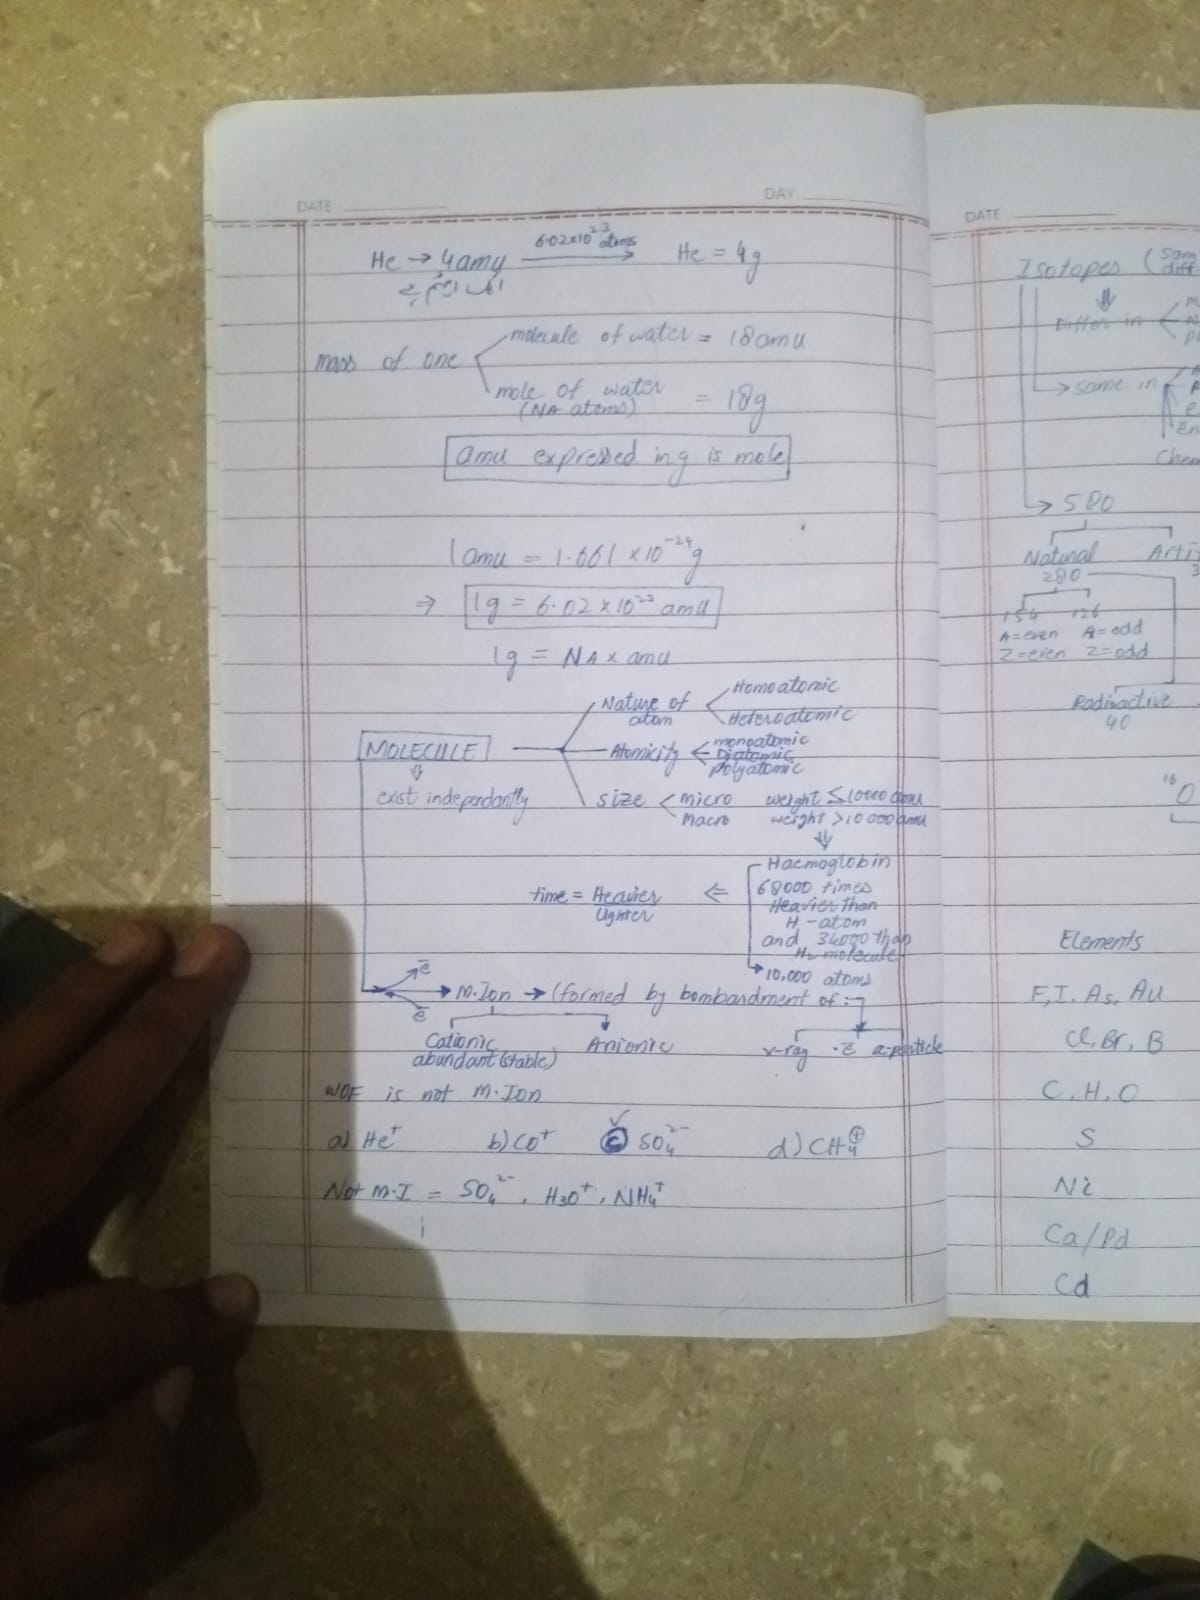 DATE
DAY
He → 4amu 6.02x10²³ atoms → He = 4g
ایک ایٹم ہے
mass of one
molecule of water = 18amu
mole of water = 18g
(NA atoms)
amu expressed in g is mole
1amu = 1.661 x 10⁻²⁴g
⇒ 1g = 6.02 x 10²³ amu
1g = NA x amu
MOLECULE
⇓
exist independantly
Nature of atom
Homoatomic
Heteroatomic
Atomicity
monoatomic
Diatomic
polyatomic
size
micro weight ≤ 10000 amu
Macro weight > 10000 amu
⇓
Haemoglobin
68000 times
Heavier than
H-atom
and 34000 than
H₂ molecule
→ 10,000 atoms
⇐
time = Heavier
Lighter
ē
→ M.Ion → (formed by bombardment of :-
ē
Cationic
abundant (stable)
Anionic
x-ray . ē α-particle
WOF is not M.Ion
a) He⁺ b) CO⁺ ✓ (c) SO₄²⁻ d) CH₄⊕
Not M.I = SO₄²⁻, H3O⁺, NH₄⁺
DATE
Isotopes (
⇓
Differ in
→ same in
Chem
→ 580
Natural
280
154 126
A=even A=odd
Z=even Z=odd
Radioactive
40
¹⁶O
Elements
F, I, As, Au
Cl, Br, B
C, H, O
S
Ni
Ca/Pd
Cd